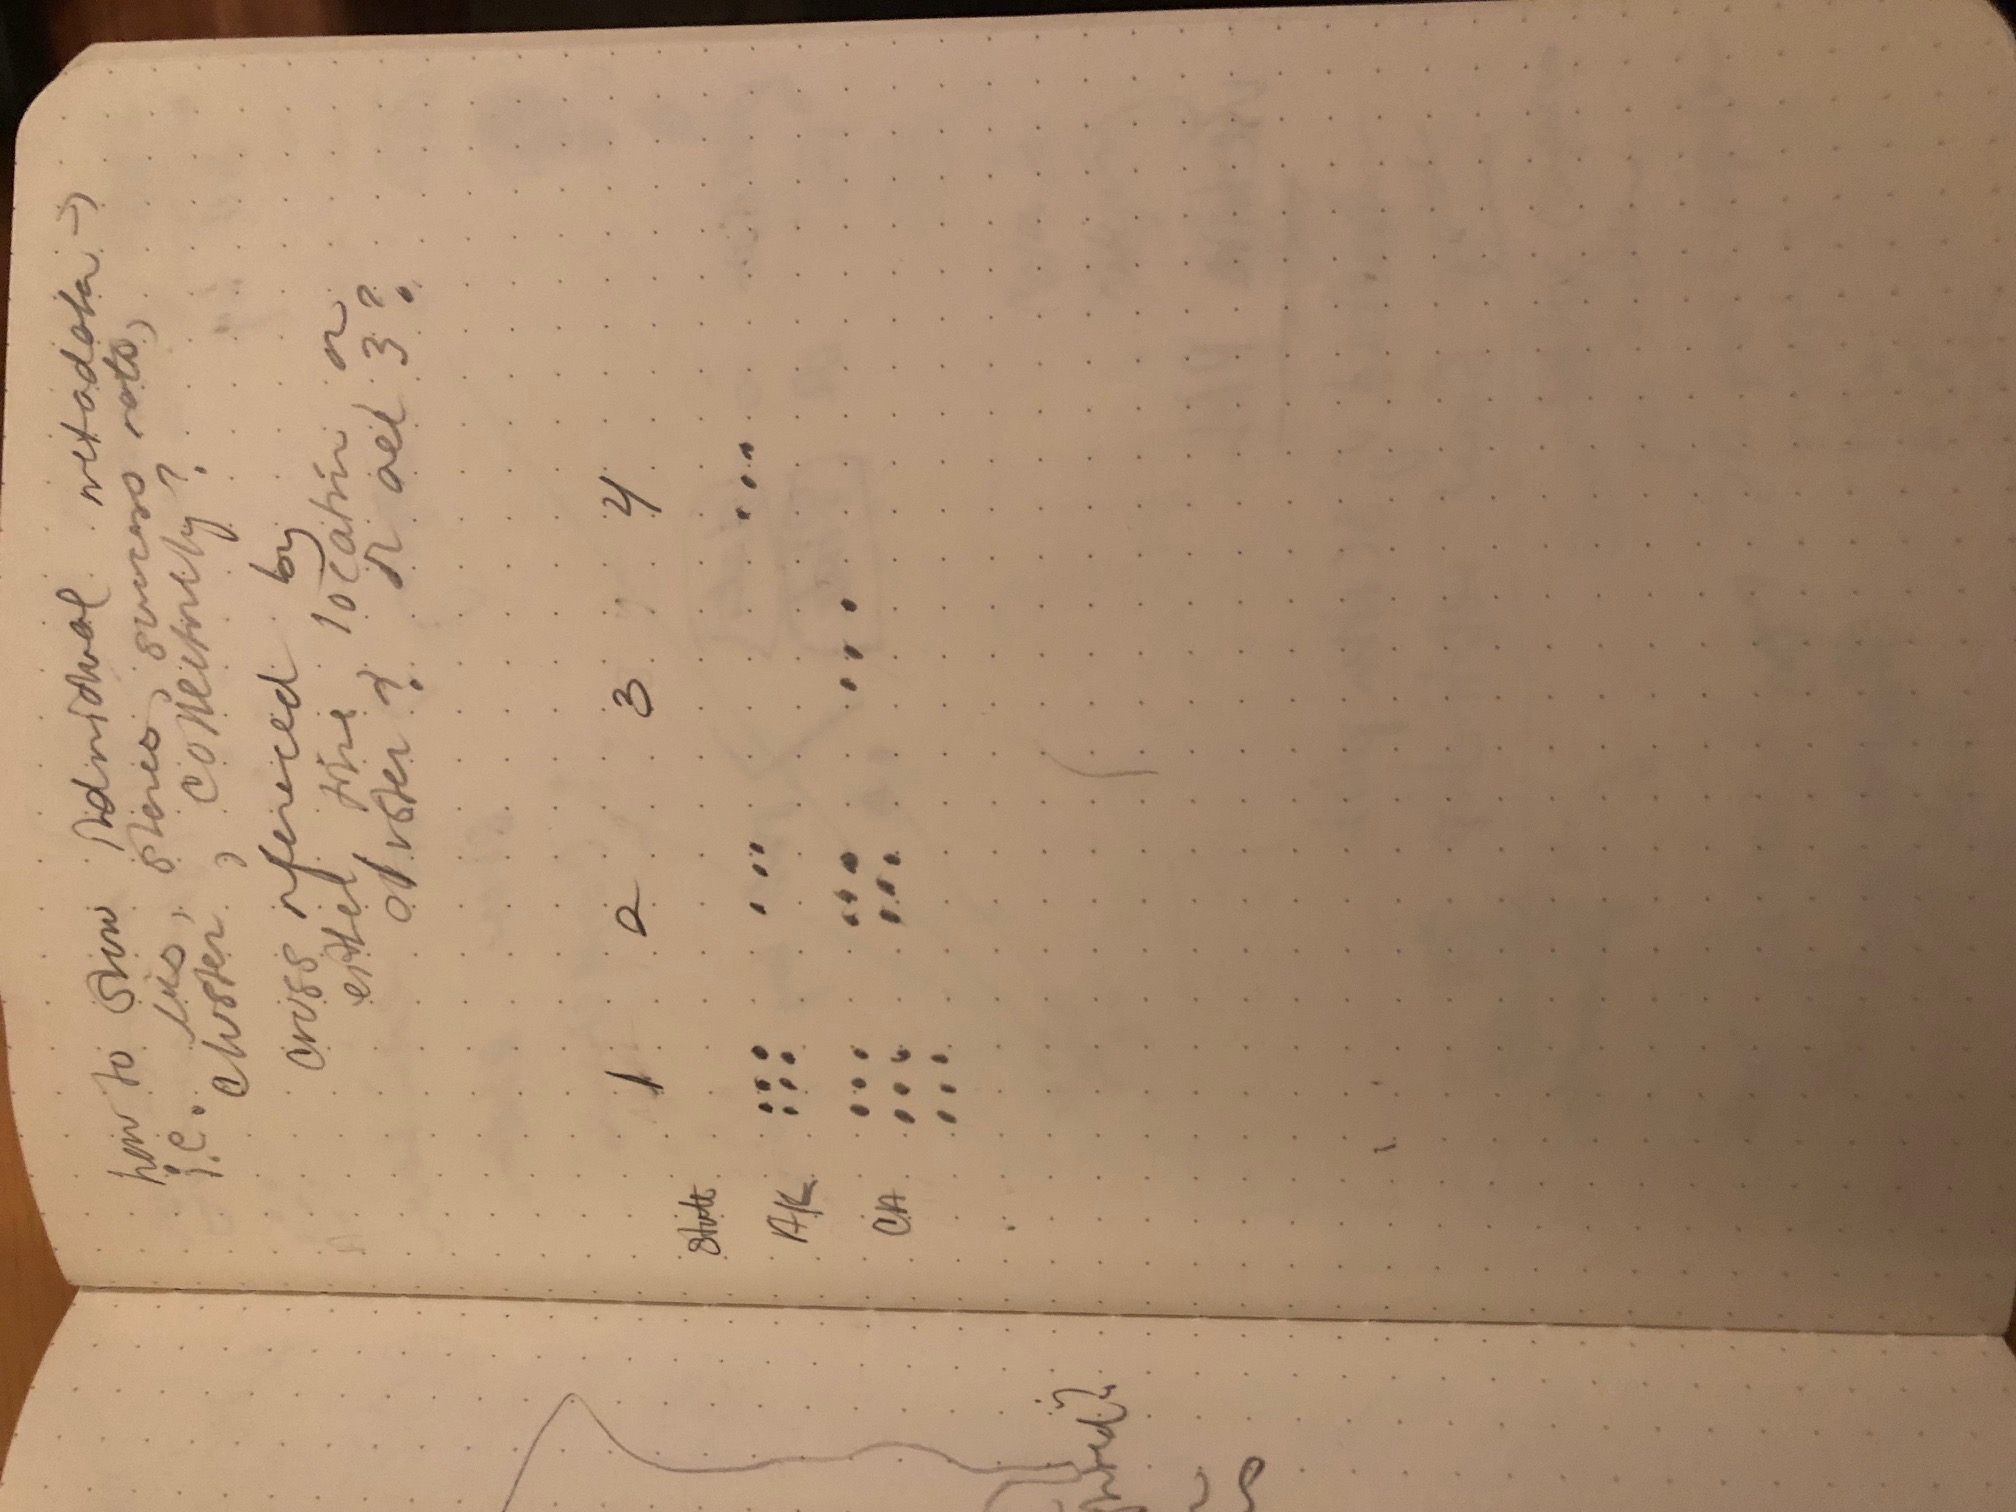 how to show individual metadata →
i.e. , stories, success rate,
cluster, collectively?
cross refereced by
either, time, location, or
cluster? or all 3?
1 2 3 4
State
AK
CA